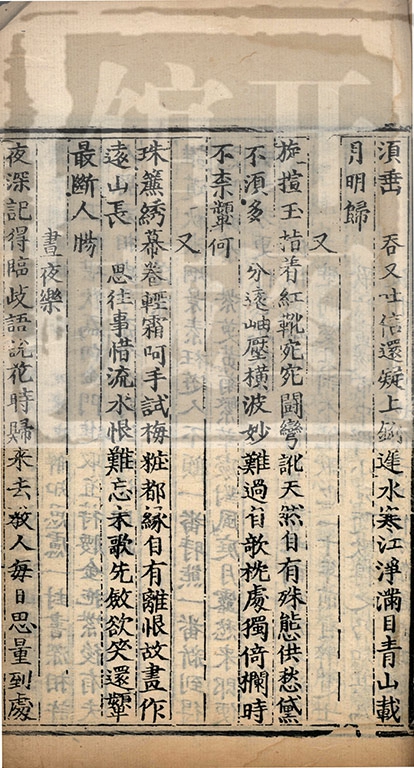 湏垂　吞又吐信還疑上鈎遲水寒江淨滿目青山載
月明歸
又
旋揎玉指着紅靴宛宛鬬彎訛天然自有殊態供愁黛
不湏多　分遠岫壓橫波妙難過自歌枕處獨倚欄時
不柰顰何
又
珠簾綉幕卷輕霜呵手試梅粧都緣自有離恨故畫作
遠山長　思往事惜流水恨難忘未歌先斂欲笑還顰
最斷人腸
晝夜樂
夜深記得臨歧語說花時歸來去教人每日思量到處